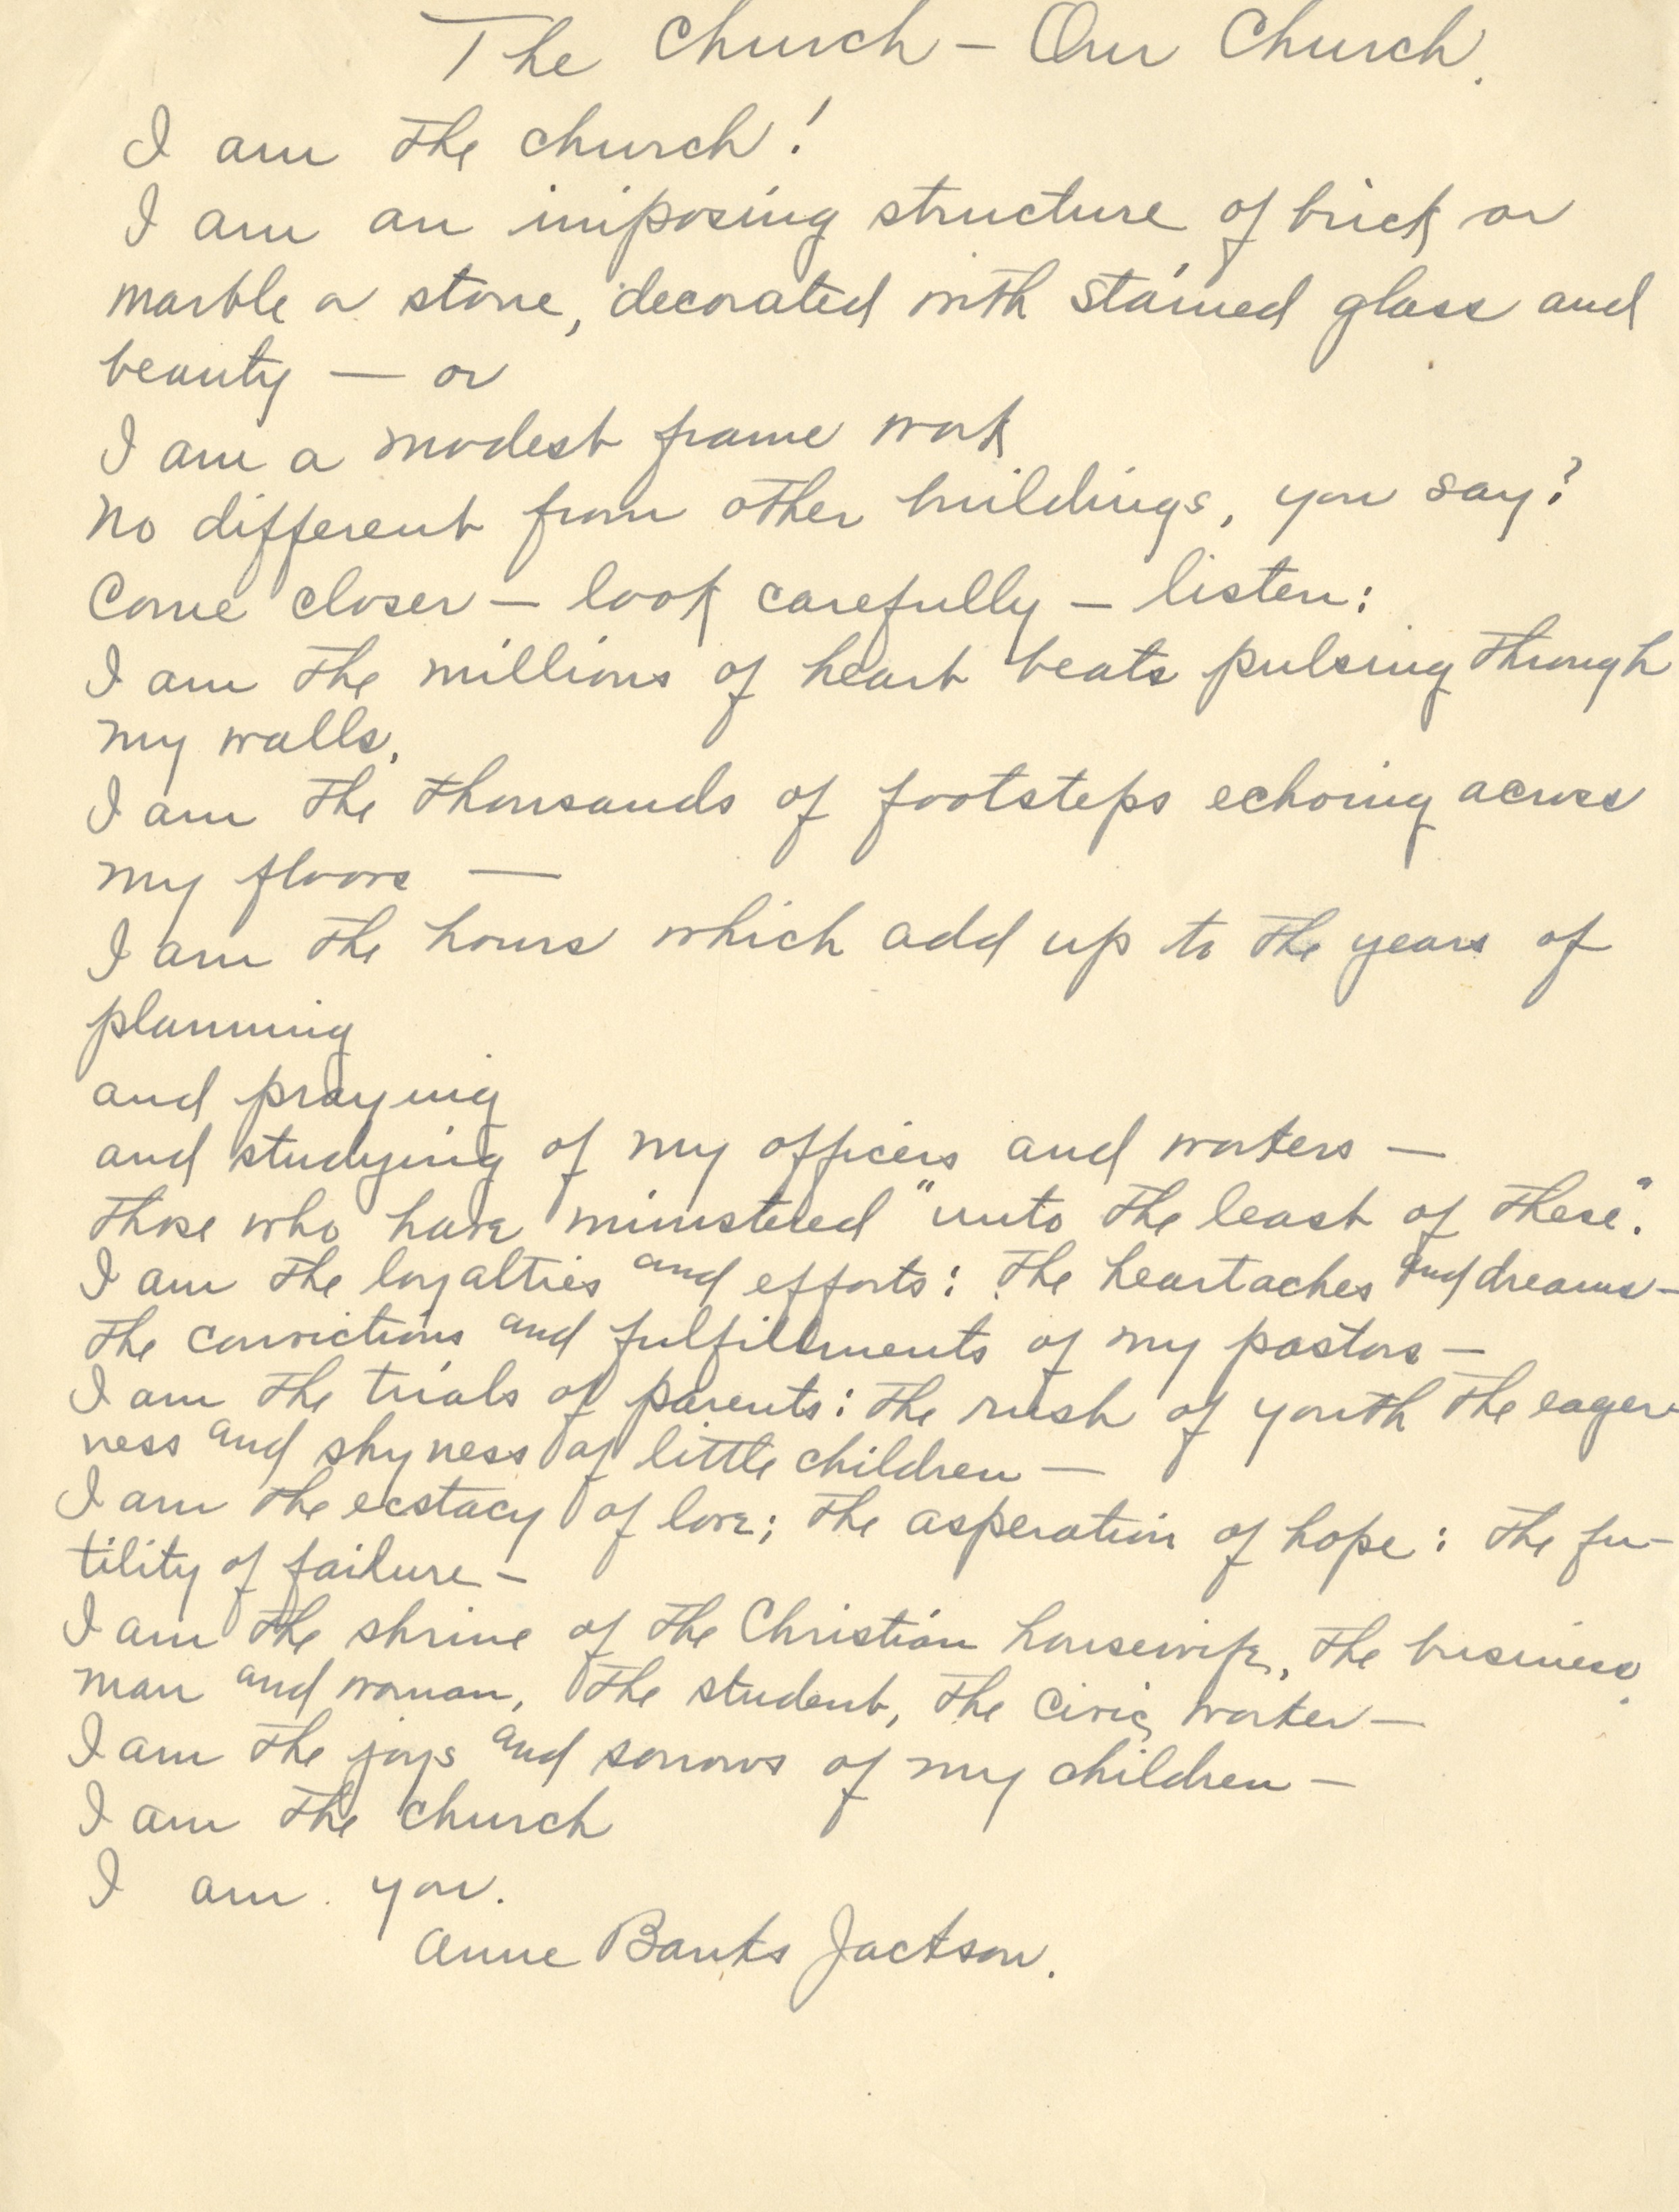 The Church – Our Church.
I am the church!
I am an imposing structure of brick or
marble or stone, decorated with stained glass and
beauty — or
I am a modest frame work
No different from other buildings, you say?
Come closer – look carefully – listen:
I am the millions of heart beats pulsing through
my walls.
I am the thousands of footsteps echoing across
my floors —
I am the hours which add up to the years of
planning
and praying
and studying of my officers and workers —
those who have ministered "unto the least of these".
I am the loyalties and efforts: the heartaches and dreams –
the convictions and fulfillments of my pastors –
I am the trials of parents: the rush of youth the eager-
ness and shyness of little children –
I am the ecstacy of love; the asperation of hope: the fu-
tility of failure –
I am the shrine of the Christian housewife, the business
man and woman, the student, the civic worker –
I am the joys and sorrows of my children –
I am the church
I am you.
Anne Banks Jackson.